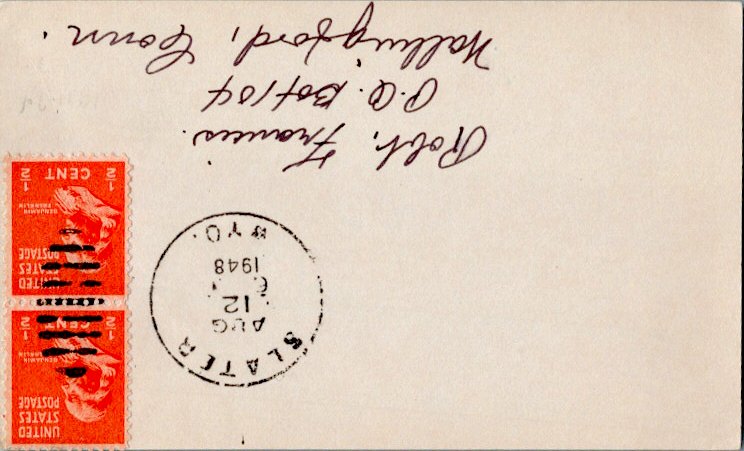 UNITED
STATES
POSTAGE
BENJAMIN
FRANKLIN
1/2 CENT 1/2
UNITED
STATES
POSTAGE
BENJAMIN
FRANKLIN
1/2 CENT 1/2
SLATER
AUG
12
1948
WYO.
Robt. Francis.
P.O. Box 104
Wallingford, Conn.